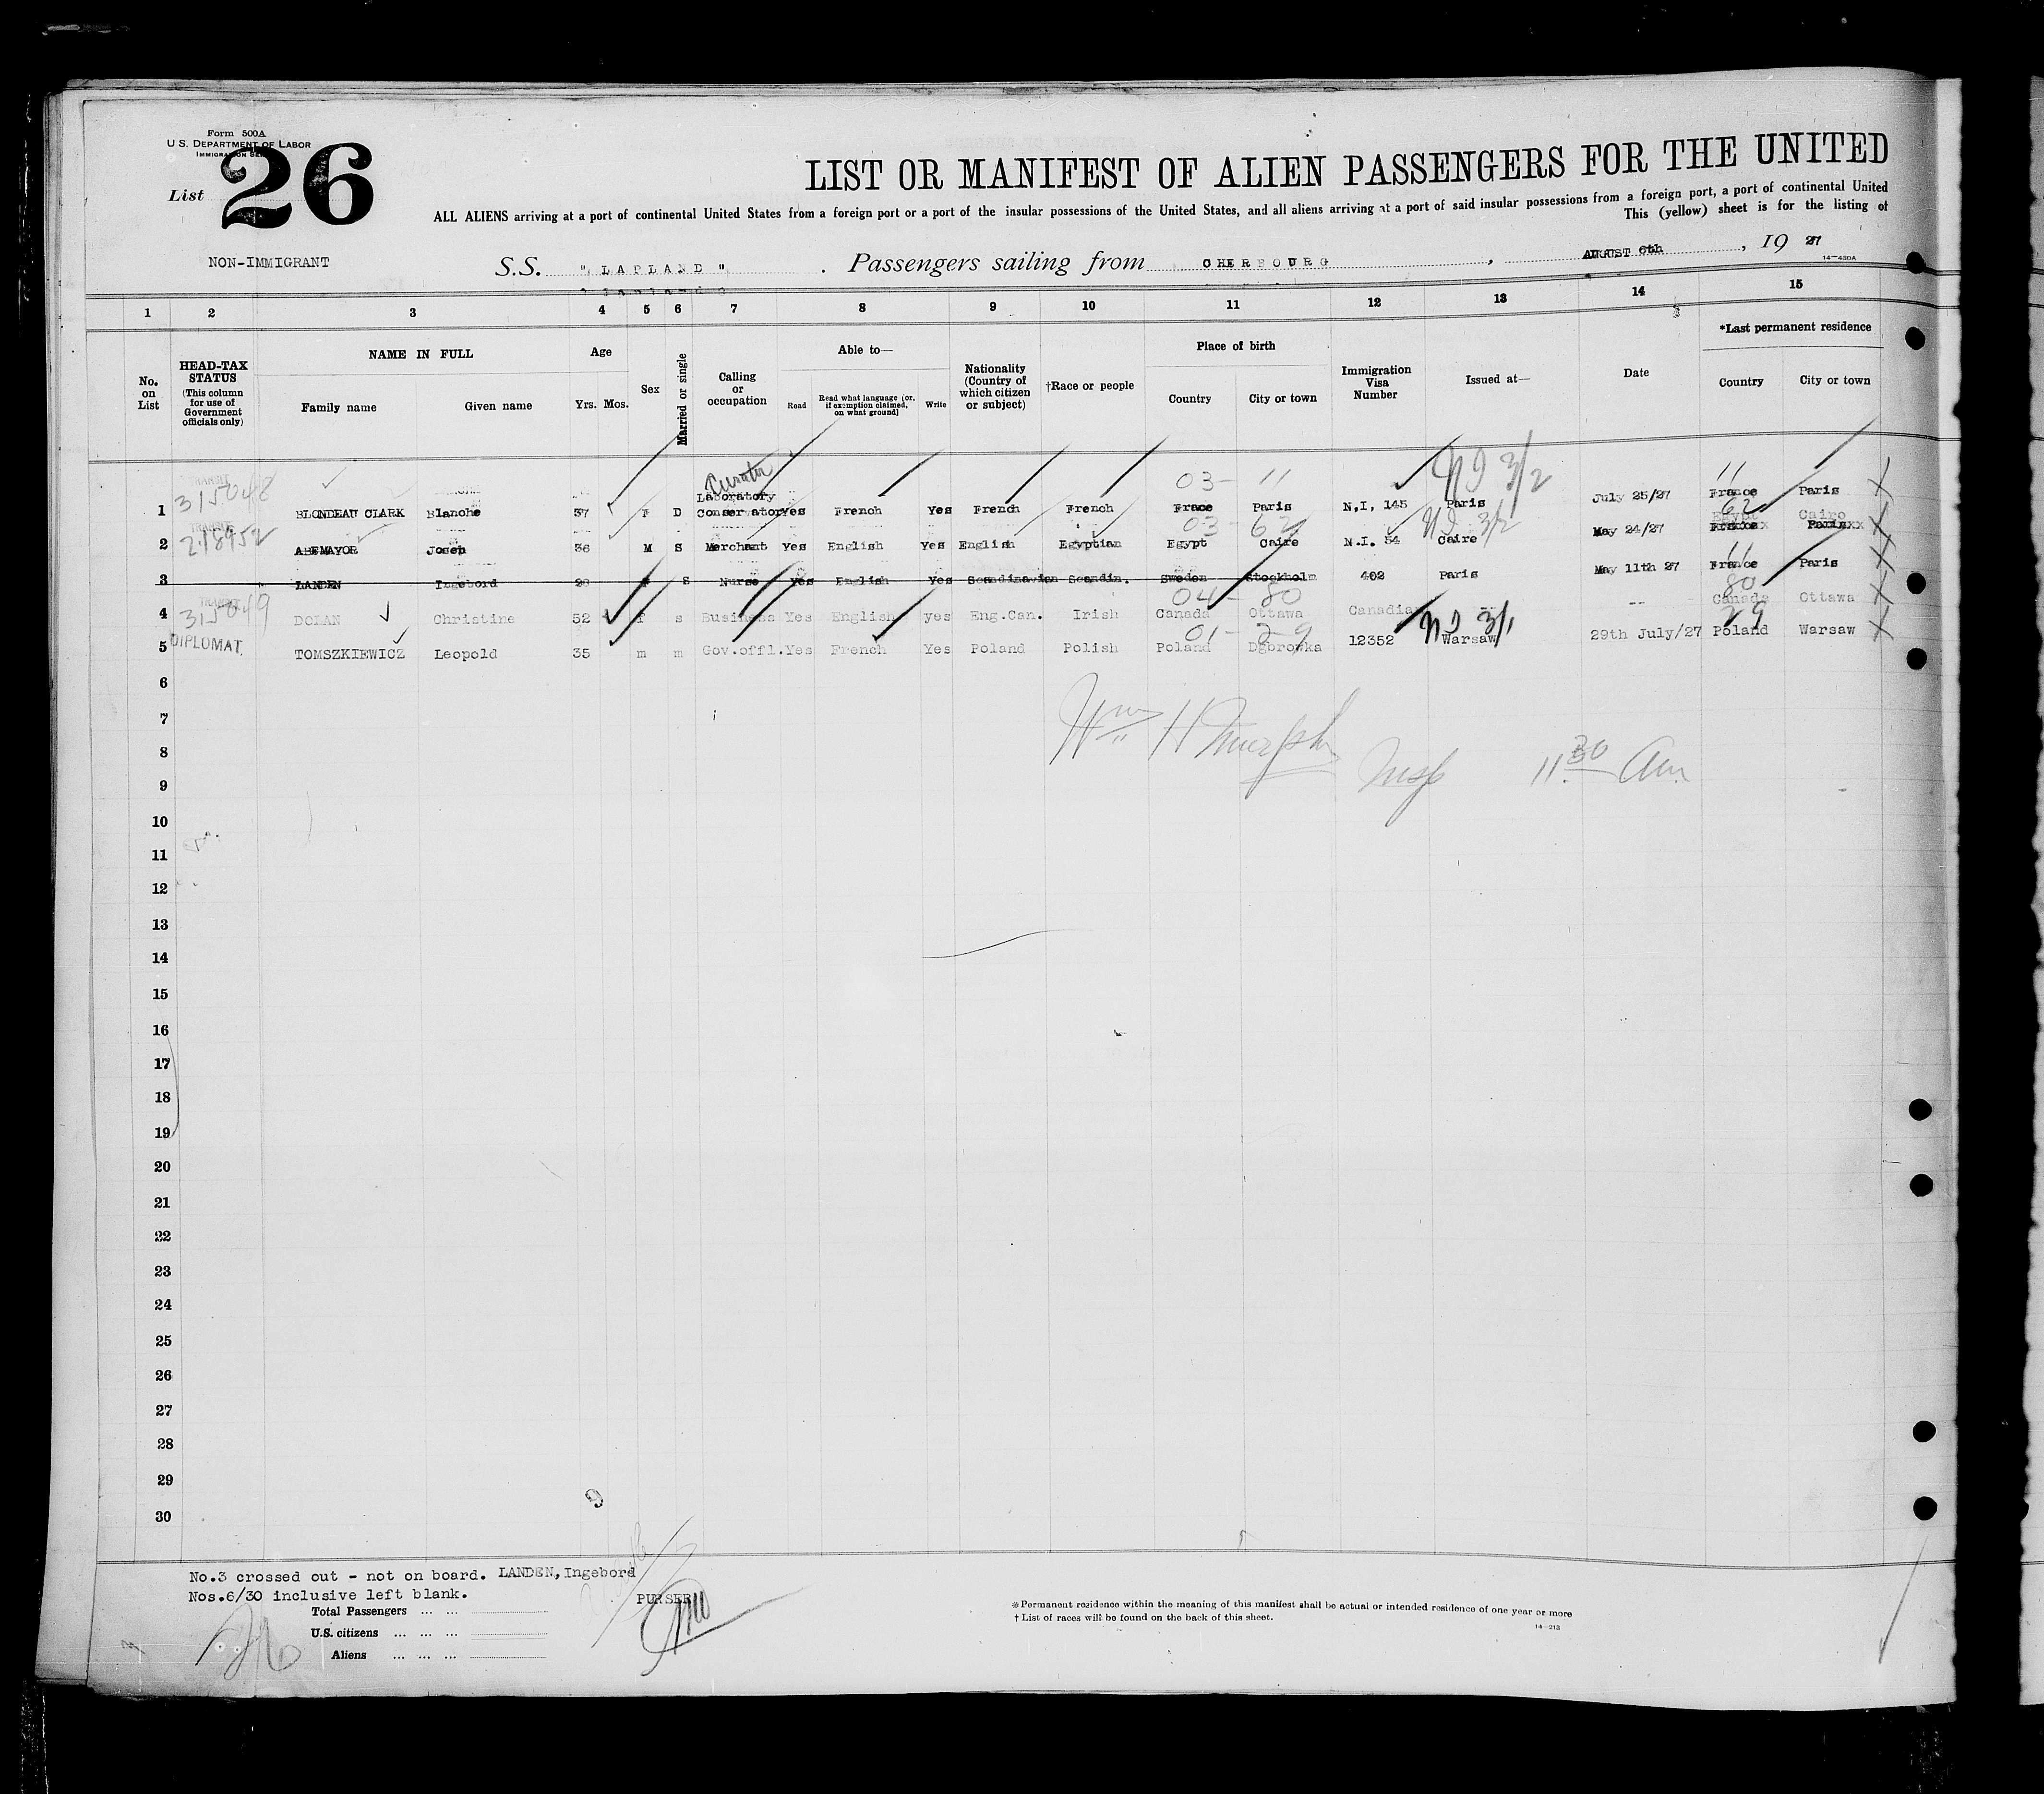 Form 500A
U. S. DEPARTMENT OF LABOR
IMMIGRATION SERVICE
List 26
LIST OR MANIFEST OF ALIEN PASSENGERS FOR THE UNITED
ALL ALIENS arriving at a port of continental United States from a foreign port or a port of the insular possessions of the United States, and all aliens arriving at a port of said insular possessions from a foreign port, a port of continental United
This (yellow) sheet is for the listing of
NON-IMMIGRANT
S.S. " LAPLAND " . Passengers sailing from CHERBOURG , AUGUST 6th , 19 27
14—430A
1 2 3 4 5 6 7 8 9 10 11 12 13 14 15
No. on List
HEAD-TAX STATUS (This column for use of Government officials only)
NAME IN FULL
Family name Given name
Age
Yrs. Mos.
Sex
Married or single
Calling or occupation
Able to—
Read
Read what language (or, if exemption claimed, on what ground)
Write
Nationality (Country of which citizen or subject)
†Race or people
Place of birth
Country City or town
Immigration Visa Number
Issued at—
Date
*Last permanent residence
Country City or town
TRANSIT 315048 Curator 03- 11 NI 3/2 11
1 BLONDEAU CLARK Blanche 37 F D Laboratory Conservator Yes French Yes French French Frace Paris N,I, 145 Paris July 25/27 France Paris X
TRANSIT 218952 03- 62 NI 3/2 62 Egypt Cairo
2 ABEMAYOR Joseph 36 M S Merchant Yes English Yes English Egyptian Egypt Caire N.I. 54 Caire May 24/27 X
3 LANDEN Ingebord 28 F S Nurse yes English Yes Scandinavian Scandin. Sweden Stockholm 402 Paris May 11th 27 France Paris X
TRANSIT 315049 04 - 80 11 80
4 DOLAN Christine 52 F s Business Yes English yes Eng.Can. Irish Canada Ottawa Canadian -- -- Canada Ottawa X
DIPLOMAT. 01- 29 NI 3/1 29
5 TOMSZKIEWICZ Leopold 35 m m Gov.offl. Yes French Yes Poland Polish Poland Dgbrowka 12352 Warsaw 29th July/27 Poland Warsaw X
6
7
Wm H Murphy
8
Insp 11 30 Am.
9
10
11
12
13
14
15
16
17
18
19
20
21
22
23
24
25
26
27
28
29
30
No.3 crossed out - not on board. LANDEN,Ingebord
Nos.6/30 inclusive left blank.
PURSER
Total Passengers ... ...
U.S. citizens ... ... ...
Aliens ... ... ...
26
* Permanent residence within the meaning of this manifest shall be actual or intended residence of one year or more
† List of races will be found on the back of this sheet.
14—213